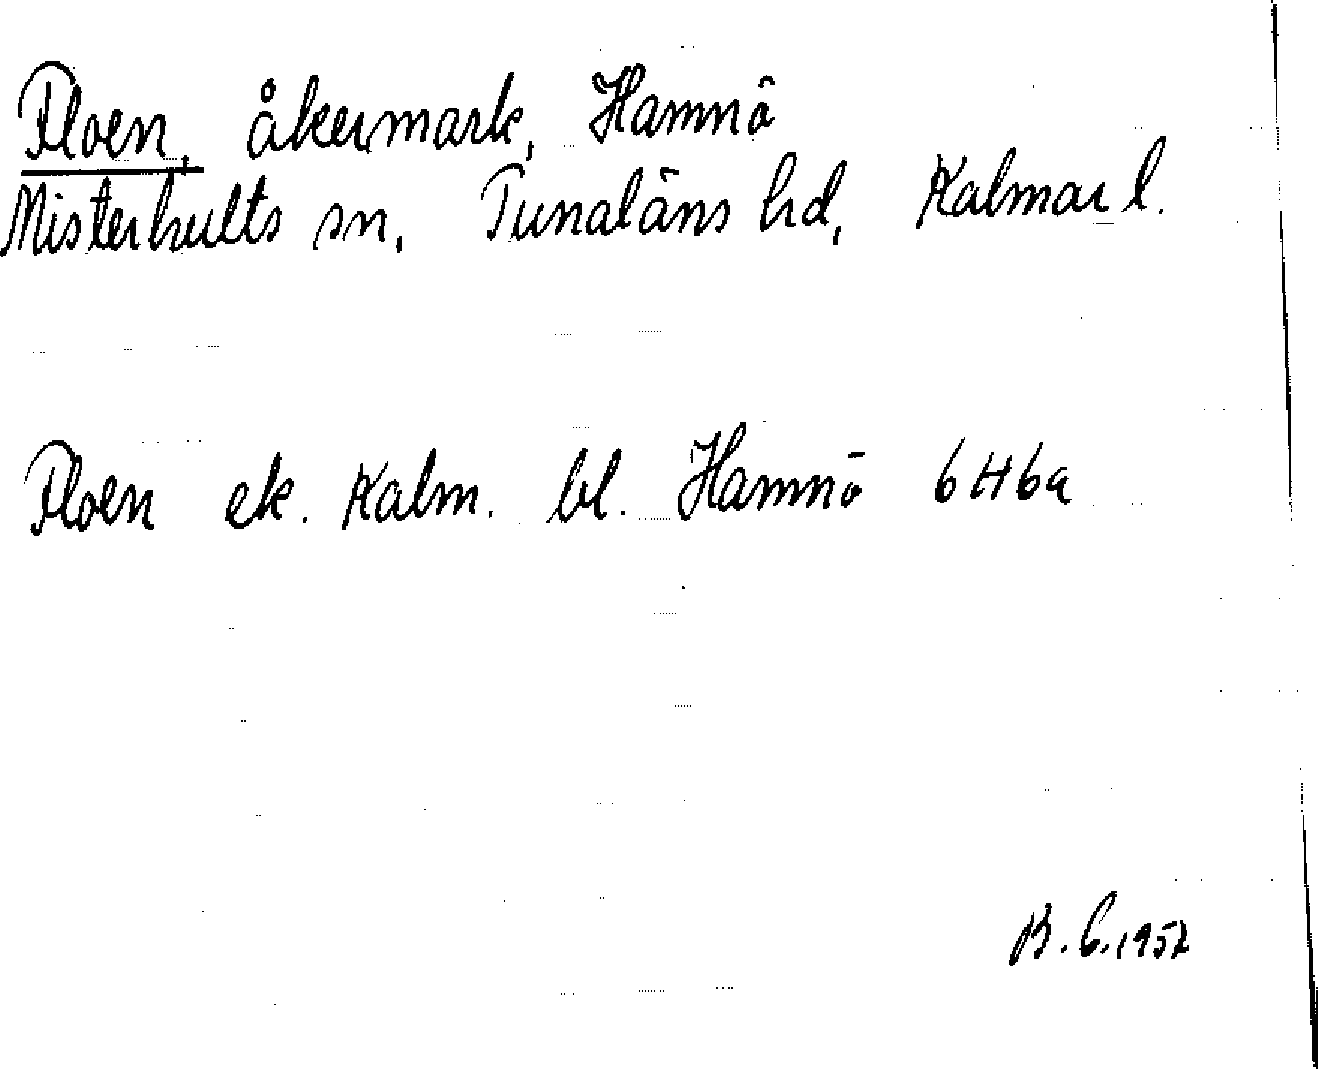 Floen, åkermark, Hamnö
Misterhults sn, Tunaläns hd, Kalmar l.
Floen ek. Kalm. bl. Hamnö 6H6a
B. C. 1952